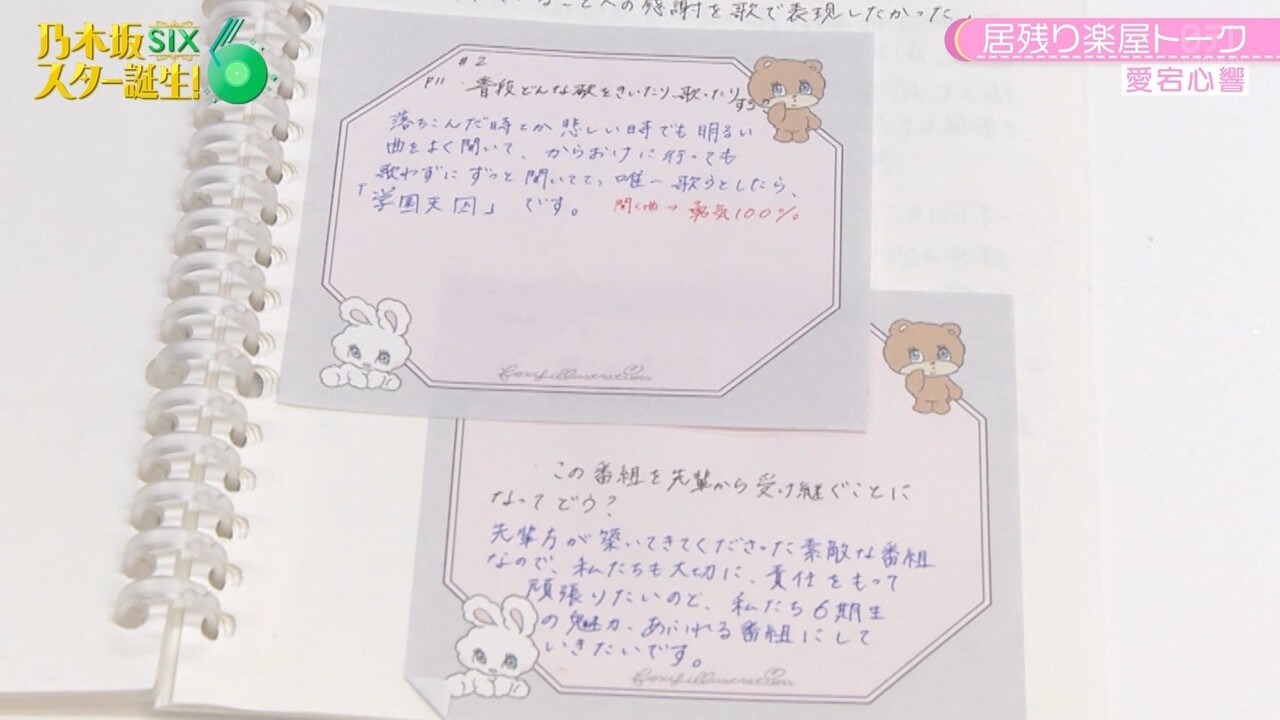 乃木坂SIX
スター誕生!
6
居残り楽屋トーク
愛宕心響
ることへの感謝を歌で表現したかった」
#2
P11 普段どんな歌をきいたり、歌ったりする?
落ちこんだ時とか悲しい時でも明るい
曲をよく聞いて、からおけに行っても
歌わずにずっと聞いてて、唯一歌うとしたら、
「学園天国」です。 聞く曲→勇気100%
この番組を先輩から受け継ぐことに
なってどう?
先輩方が築いてきてくださった素敵な番組
なので、私たちも大切に、責任をもって
頑張りたいのと、私たち6期生
の魅力、あふれる番組にして
いきたいです。